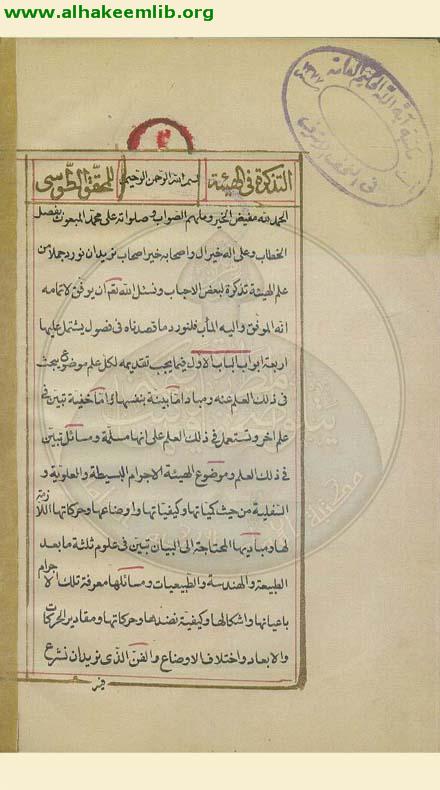 www.alhakeemlib.org
٢
التذكرة فى الهيئة
بسم الله الرحمن الرحيم
للمحقق الطوسى
الحمد لله مفيض الخير وملهم الصواب وصلواته على محمد المبعوث بفصل
الخطاب وعلى اله خير ال واصحابه خير اصحاب نريد ان نورد جملا من
علم الهيئة تذكرة لبعض الاحباب ونسئل الله تعم ان يوفق لاتمامه
انه الموفق واليه المأب فلنورد ما قصدناه فى فصول يشتمل عليها
اربعة ابواب الباب الاول فيما يجب تقديمه لكل علم موضوع يبحث
فى ذلك العلم عنه ومباد اما بينة بنفسها واما خفية تبين فى
علم اخر وتستعمل فى ذلك العلم على انها مسلمة ومسائل تبين
فى ذلك العلم وموضوع الهيئة الاجرام البسيطة والعلوية و
السفلية من حيث كمياتها وكيفياتها واوضاعها وحركاتها اللازمة
لها ومباديها المحتاجة الى البيان تبين فى علوم ثلثة ما بعد
الطبيعة والهندسة والطبيعيات ومسائلها معرفة تلك الاجرام
باعيانها واشكالها وكيفية نضدها وحركاتها ومقادير الحركات
والابعاد واختلاف الاوضاع والفن الذى نريد ان نشرع
فيه